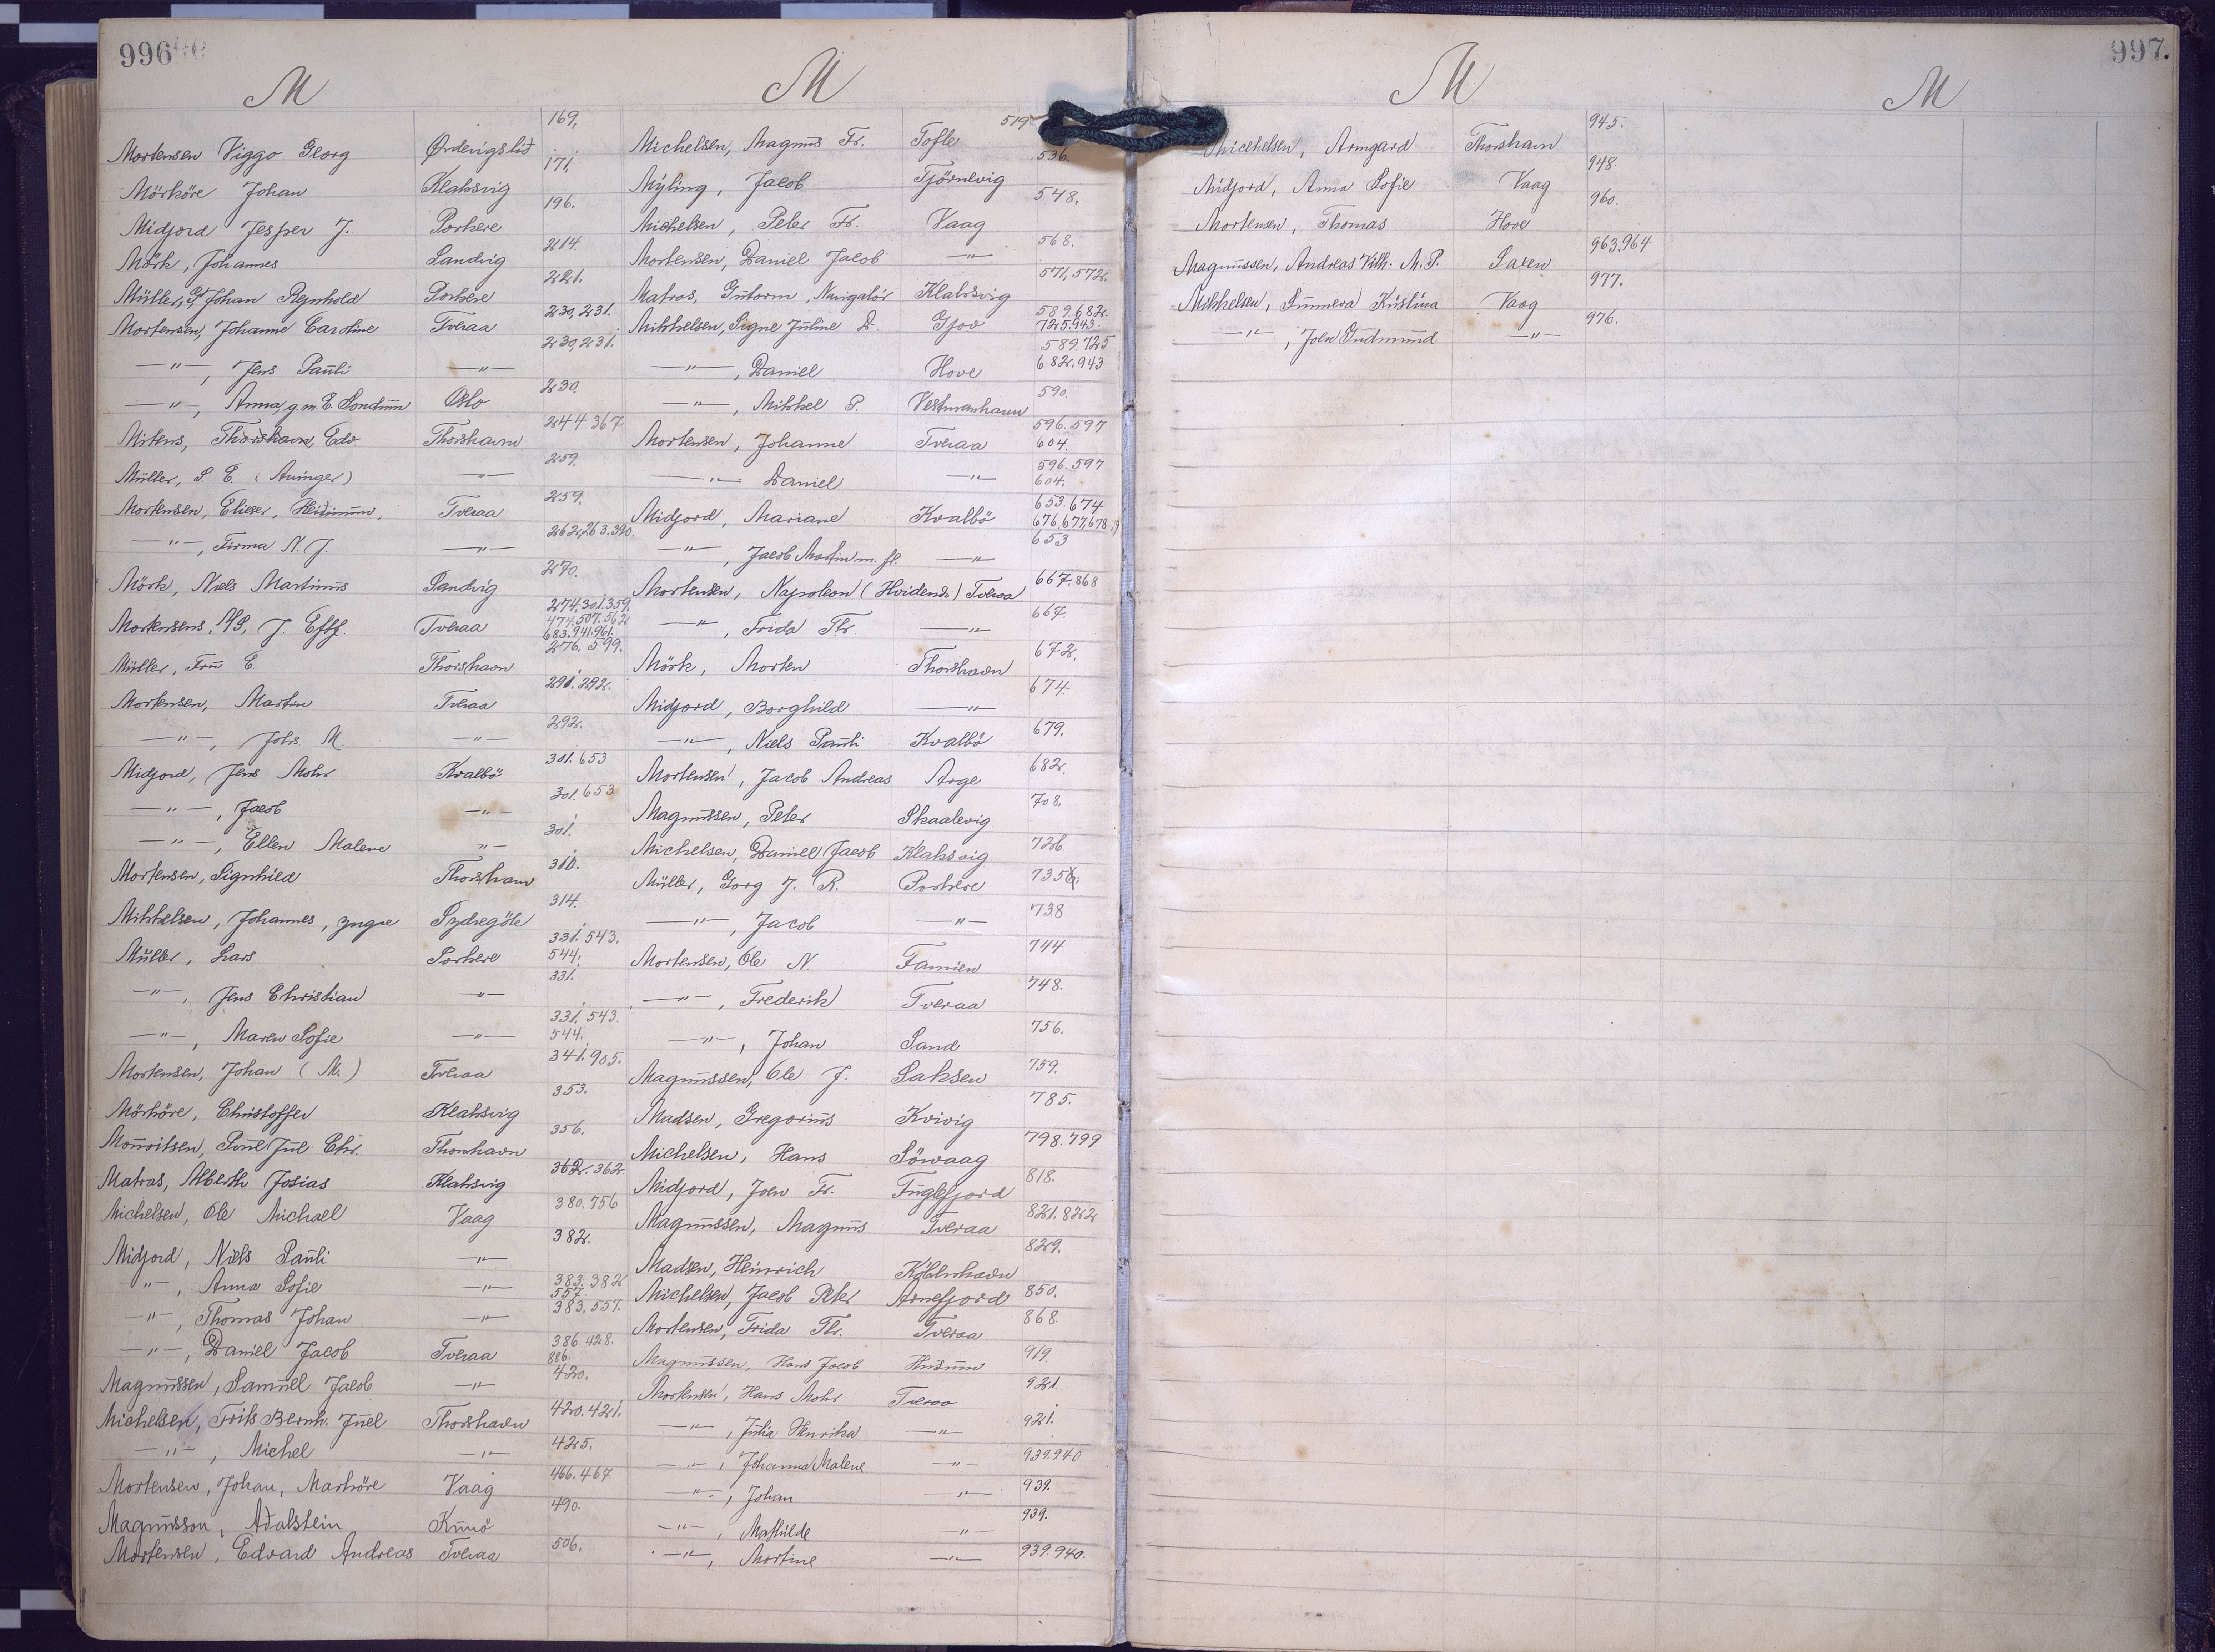 996
M
Mortensen Viggo Georg Ørdevigslid 169,
Mörköre Johan Klaksvig 171,
Midjord Jesper J. Porkere 196.
Mörk, Johannes Sandvig 214
Müller, Johan Reynhold Porkere 221.
Mortensen, Johanne Caroline Tveraa 230,231.
—"—, Jens Pauli —"— 230,231.
—"—, Anna, g.m. E. Oslo 230.
Mitens, Thorshavn, Edv. Thorshavn 244 367
Müller, S. E. —"— 259.
Mortensen, Elieser, Tveraa 259.
—"—, Firma N. J. —"— 262,263.390.
Mörk, Niels Martinus Sandvig 270.
Mortensens, J. Eftf. Tveraa 274,301.359, 474,507.562 683.941.961.
Müller, Fru E. Thorshavn 276. 599.
Mortensen, Martin Tveraa 291. 292.
—"—, Johs M. —"— 292.
Midjord, Jens Mohr Kvalbö 301. 653
—"—, Jacob —"— 301. 653
—"—, Ellen Malene "— 301.
Mortensen, Signhild Thorshavn
Mikkelsen, Johannes, yngre Sydregöte 314.
Müller, Lars Porkere 331. 543. 544.
—"—, Jens Christian —"— 331.
—"—, Maren Sofie —"— 331. 543. 544.
Mortensen, Johan (M.) Tveraa 341. 905.
Mörköre, Christoffer Klaksvig 353.
Mouritsen, Poul Jul. Chr. Thorshavn 356.
Matras, Alberth Josias Klaksvig 362. 362.
Michelsen, Ole Michael Vaag 380. 756
Midjord, Niels Pauli —"— 382.
—"—, Anna Sofie —"— 383. 382 557.
—"—, Thomas Johan —"— 383. 557.
—"—, Daniel Jacob Tveraa 386. 428. 886.
Magnussen, Samuel Jacob —"— 420.
Michelsen, Frits Bernh. Juel Thorshavn 420. 421.
—"—, Michel —"— 425.
Mortensen, Johan, Marköre Vaag 466. 467
Magnusson, Adalstein Kunö 490.
Mortensen, Edvard Andreas Tveraa 506.
M
Michelsen, Magnus Fr. Tofte 519
Mýling, Jacob Tjörnevig 536.
Michelsen, Peter Fr. Vaag 548.
Mortensen, Daniel Jacob —"— 568.
Matras, Gutorm, Navigatör Klaksvig 571, 572.
Mikkelsen, Signe Juline D. Gjov 589.682. 725.943.
—"—, Daniel Hove 589.725 682.943
—"—, Mikkel P. Vestmanhavn 590.
Mortensen, Johanne Tveraa 596.597 604.
—"— Daniel —"— 596.597 604.
Midjord, Mariane Kvalbö 653.674 676,677,678.
—"—, Jacob Martin m. fl. —"— 653
Mortensen, Napoleon (Hvidenes) Tveraa 667.868
—"—, Frida Thr. —"— 667.
Mörk, Morten Thorshavn 672.
Midjord, Borghild —"— 674.
—"—, Niels Pauli Kvalbö 679.
Mortensen, Jacob Andreas Arge 682.
Magnussen, Peter Skaalevig 708.
Michelsen, Daniel Jacob Klaksvig 726.
Müller, Gorg J. R. Porkere 735
—"—, Jacob —"— 738
Mortensen, Ole N. Famien 744
—"—, Frederik Tveraa 748.
—"—, Johan Sand 756.
Magnussen, Ole J. Saksen 759.
Madsen, Gregorius Kvivig 785.
Michelsen, Hans Sörvaag 798. 799
Midjord, Joen Fr. Fuglefjord 818.
Magnussen, Magnus Tveraa 821. 822
Madsen, Heinrich Köbenhavn 829.
Michelsen, Jacob Peter Arnefjord 850.
Mortensen, Frida Thr. Tveraa 868
Magnussen, Hans Jacob Husum 919.
Mortensen, Hans Mohr Tveraa 921.
—"—, Julia Henrika —"— 921.
—"—, Johanna Malene —"— 939.940
—"—, Johan —"— 939.
—"—, Mathilde "— 939.
—"—, Mortine —"— 939.940.
997.
M
Micehelsen, Armgard Thorshavn 945.
Midjord, Anna Sofie Vaag 948.
Mortensen, Thomas Hove 960.
Magnussen, Andreas Vilh. M. P. Saxen 963,964
Mikkelsen, Sunneva Kristina Vaag 977.
—"—, Joen Gudmund —"— 976.
M